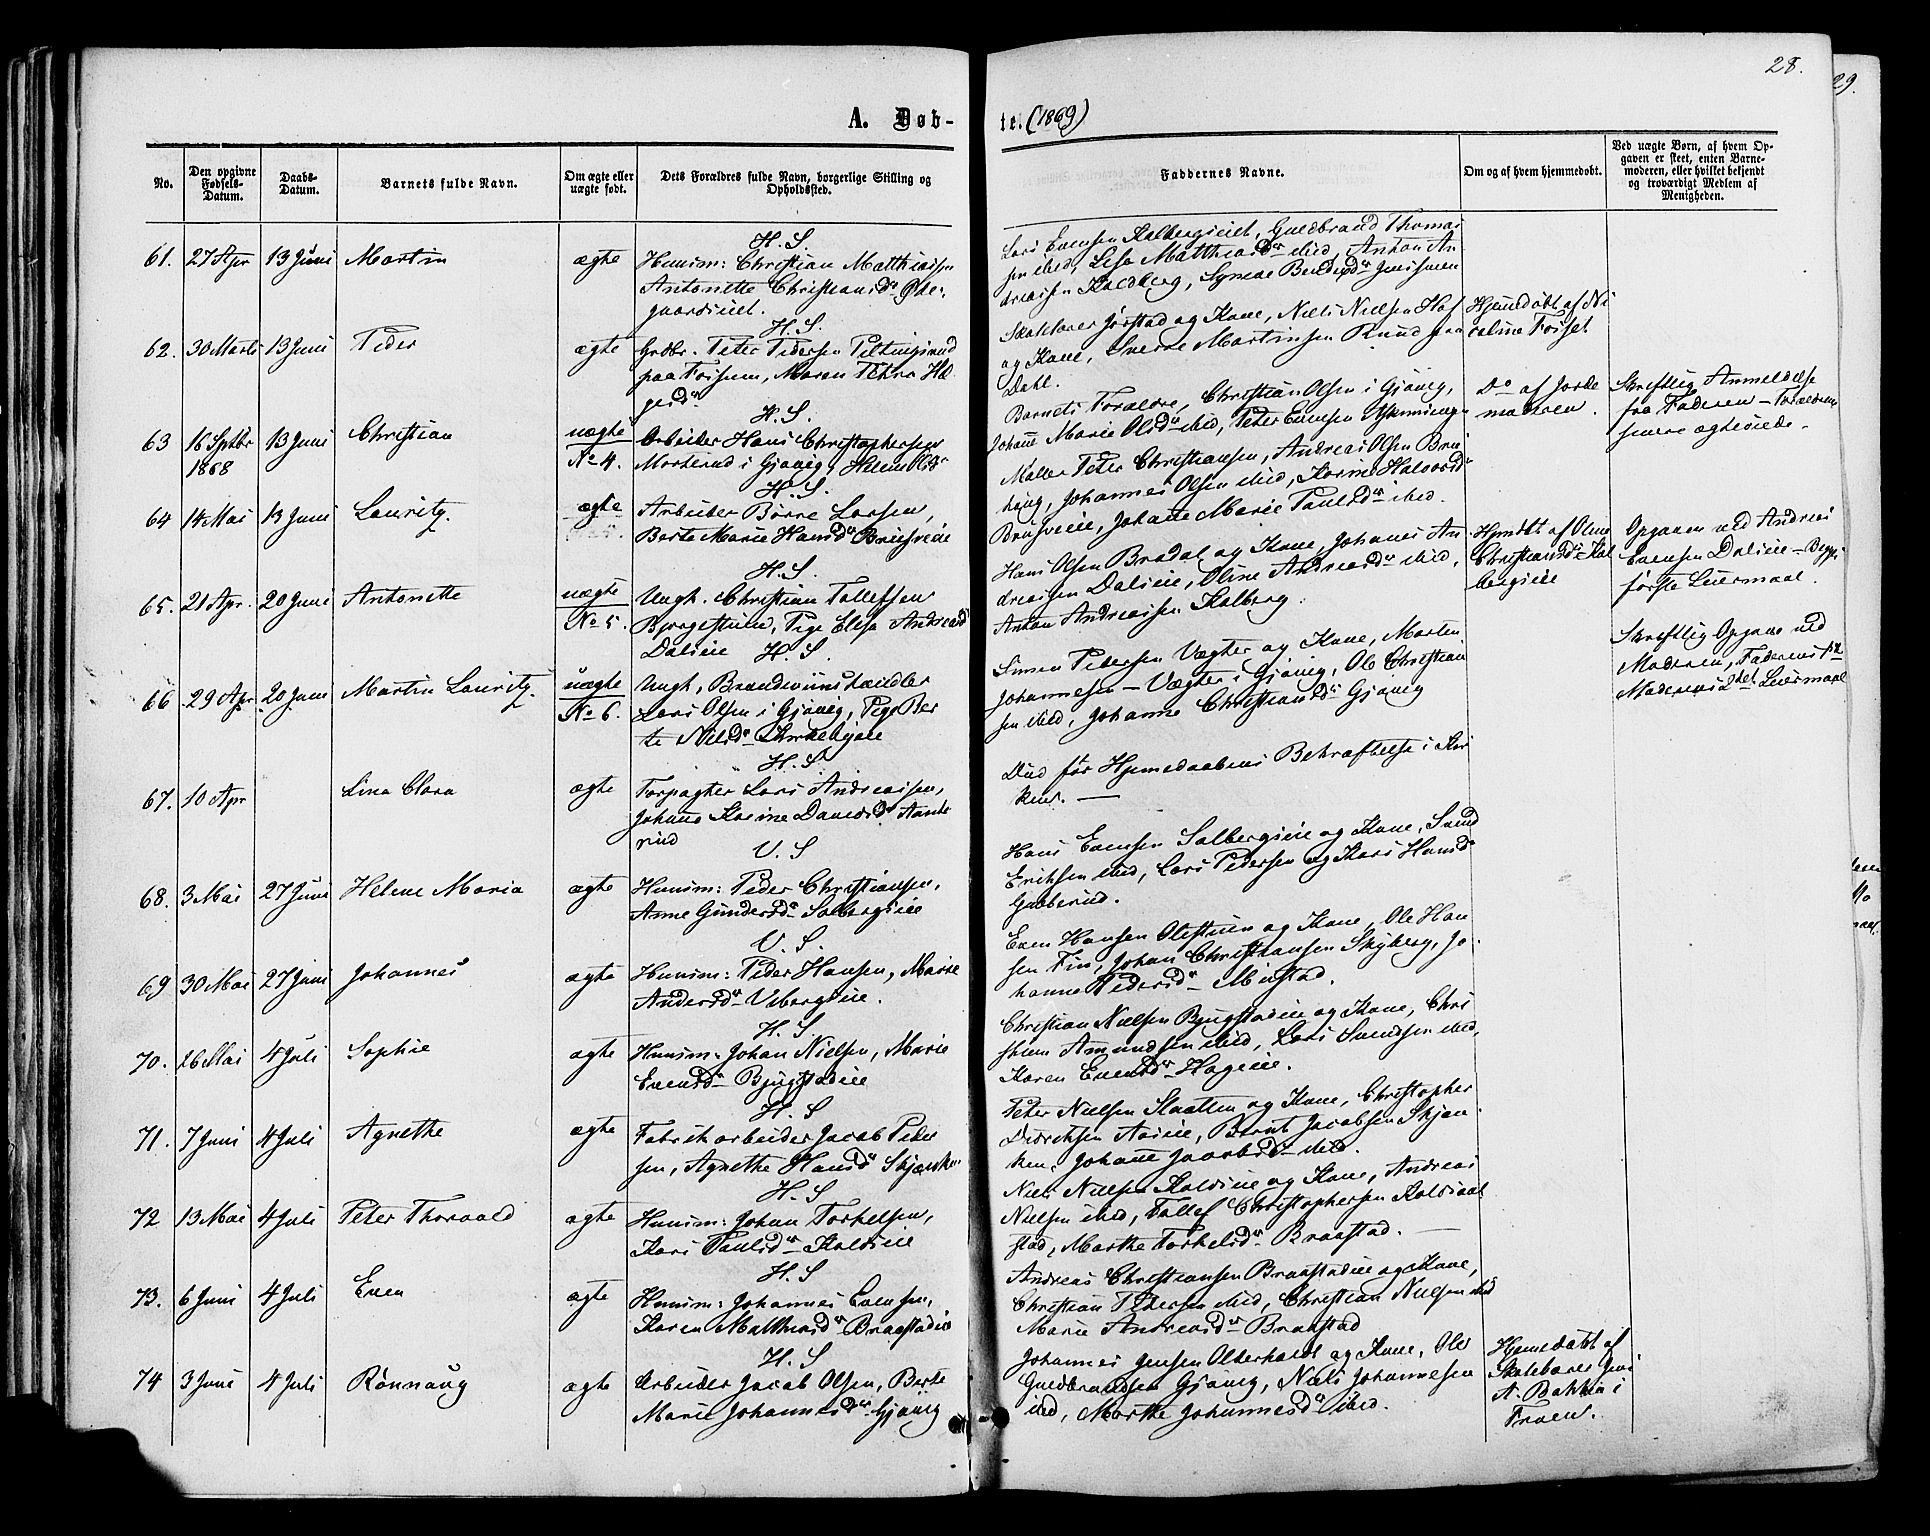 28.
29.
A. Døb-
te. (1869)
No.
Den opgivne Fødsels-Datum.
Daabs-Datum.
Barnets fulde Navn.
Om ægte eller uægte født.
Dets Forældres fulde Navn, borgerlige Stilling og Opholdssted.
Faddernes Navne.
Om og af hvem hjemmedøbt.
Ved uægte Børn, af hvem Opgaven er skeet, enten Barnemoderen, eller hvilket bekjendt og troværdigt Medlem af Menigheden.
H. S.
61. 27 Apr 13 Juni Martin ægte Huusm: Christian Matthiasen
Antonette Christiansd
Lars Evensen Kalbergseiet, Guldbrand Thomas
sen ibid, Lisa Matthiasd ibid, Anton An
dreasen Kalberg,
H. S.
62. 30 Marts 13 Juni Peder ægte Grdbr. Peter Pedersen
paa
Skolelærer Jørstad og Kone, Niels Nielsen
og Kone, Sverre Martinsen Rund paa
Dahl.
Hjemdøbt af Ni
coline
H. S.
63 16 Septbr 1868 13 Juni Christian uægte No 4. Arbeider Hans Christophersen
Morterud i Gjøvig, Helene
Barnets Forældre, Christian Olsen i Gjøvig,
Johanne Marie Olsd ibid, Peter Evensen
Do af Jorde
moderen.
Skriftlig Anmeldelse
fra Faderen – Forældrene
senere ægteviede.
H. S.
64 14 Mai 13 Juni Lauritz. ægte Arbeider Børre Larsen,
Berte Marie Hansd Brusveie
Møller Peter Christiansen, Andreas Olsen
Johannes Olsen ibid, Karine Halvorsd
Brusveie, Johanne Marie Paulsd ibid.
H. S.
65. 21 Apr. 20 Juni Antonette uægte No 5. Ungk. Christian Tollefsen
Pige Elise Andreasd
Dalseie
Hans Olsen Bradal og Kone, Johannes An
dreasen Dalseie, Oline Andreasd ibid,
Anton Andreasen Kalberg.
Hjemdbt af Oline
Christiansd Kal
bergseie
Opgaven ved Andreas
Evensen Dalseie – Begges
første Leiermaal.
H. S.
66 29 Apr 20 Juni Martin Lauritz. uægte No 6. Ungk, Brændeviinshandler
Lars Olsen i Gjøvig, Pige Ber
te Nilsd
Simen Pedersen Vægter og Kone, Morten
Johannesen – Vægter i Gjøvig, Ole Christian
sen ibid, Johanne Christiansd Gjøvig
Skriftlig Opgave ved
Moderen, Faderens 1ste
Moderens 2det Leiermaal
H. S.
67. 10 Apr Lina Clara ægte Forpagter Lars Andreasen,
Johanne Karine
rud
Død før Hjemmedaabens Bekræftelse i Kir
ken. —
V. S
68. 3 Mai 27 Juni Helene Maria ægte Huusm: Peder Christiansen,
Anne Gundersd Solbergseie
Hans Evensen Solbergseie og Kone, Svend
Eriksen ibid, Lars Pedersen og Kari Hansd
Gubberud.
V. S.
69 30 Mai 27 Juni Johannes ægte Huusm: Peder Hansen, Marie
Andersd Vibergseie.
Even Hansen Olestuen og Kone, Ole Han
sen Fin, Johan Christiansen Skyberg, Jo
hanne Pedersd Mustad.
H. S.
70. 26 Mai 4 Juli Sophie ægte Huusm: Johan Nielsen, Marie
Evensd Bjugstadeie
Christian Nielsen Bjugstadeie og Kone, Chri
stian Amundsen ibid, Lars Svendsen ibid,
Karen Evensd Hageeie.
H. S
71. 7 Juni 4 Juli Agnethe ægte Fabrikarbeider Jacob Peder
sen, Agnethe Hansd
Peter Nielsen Slaatten og Kone, Christopher
Didriksen Aaseie, Bernt Jacobsen Skjøn
ken, Johanne Jacobsd ibid.
H. S
72 13 Mai 4 Juli Peter Thorvald ægte Huusm: Johan Torkelsen,
Kari Paulsd Kaldseie
Niels Nielsen Kaldseie og Kone, Andreas
Nielsen ibid, Tollef Christophersen
stad, Marthe Torkelsd Braastad. —
H. S
73. 6 Juni 4 Juli Even ægte Huusm: Johannes Evensen,
Karen Matthiasd Braastadeie
Andreas Christiansen Braastadeie og Kone,
Christian Pedersen ibid, Christian Nielsen ibid
Marie Andreasd Braastad
H. S
74 3 Juni 4 Juli Rønnaug ægte Arbeider Jacob Olsen, Berte
Marie Johannesd Gjøvig
Johannes Jensen Olderhaldt og Kone, Ole
Guldbrandsen Gjøvig, Niels Johannesen
ibid, Marthe Johannesd ibid.
Hjemmedøbt af
Skolelærer
A. Bakken i